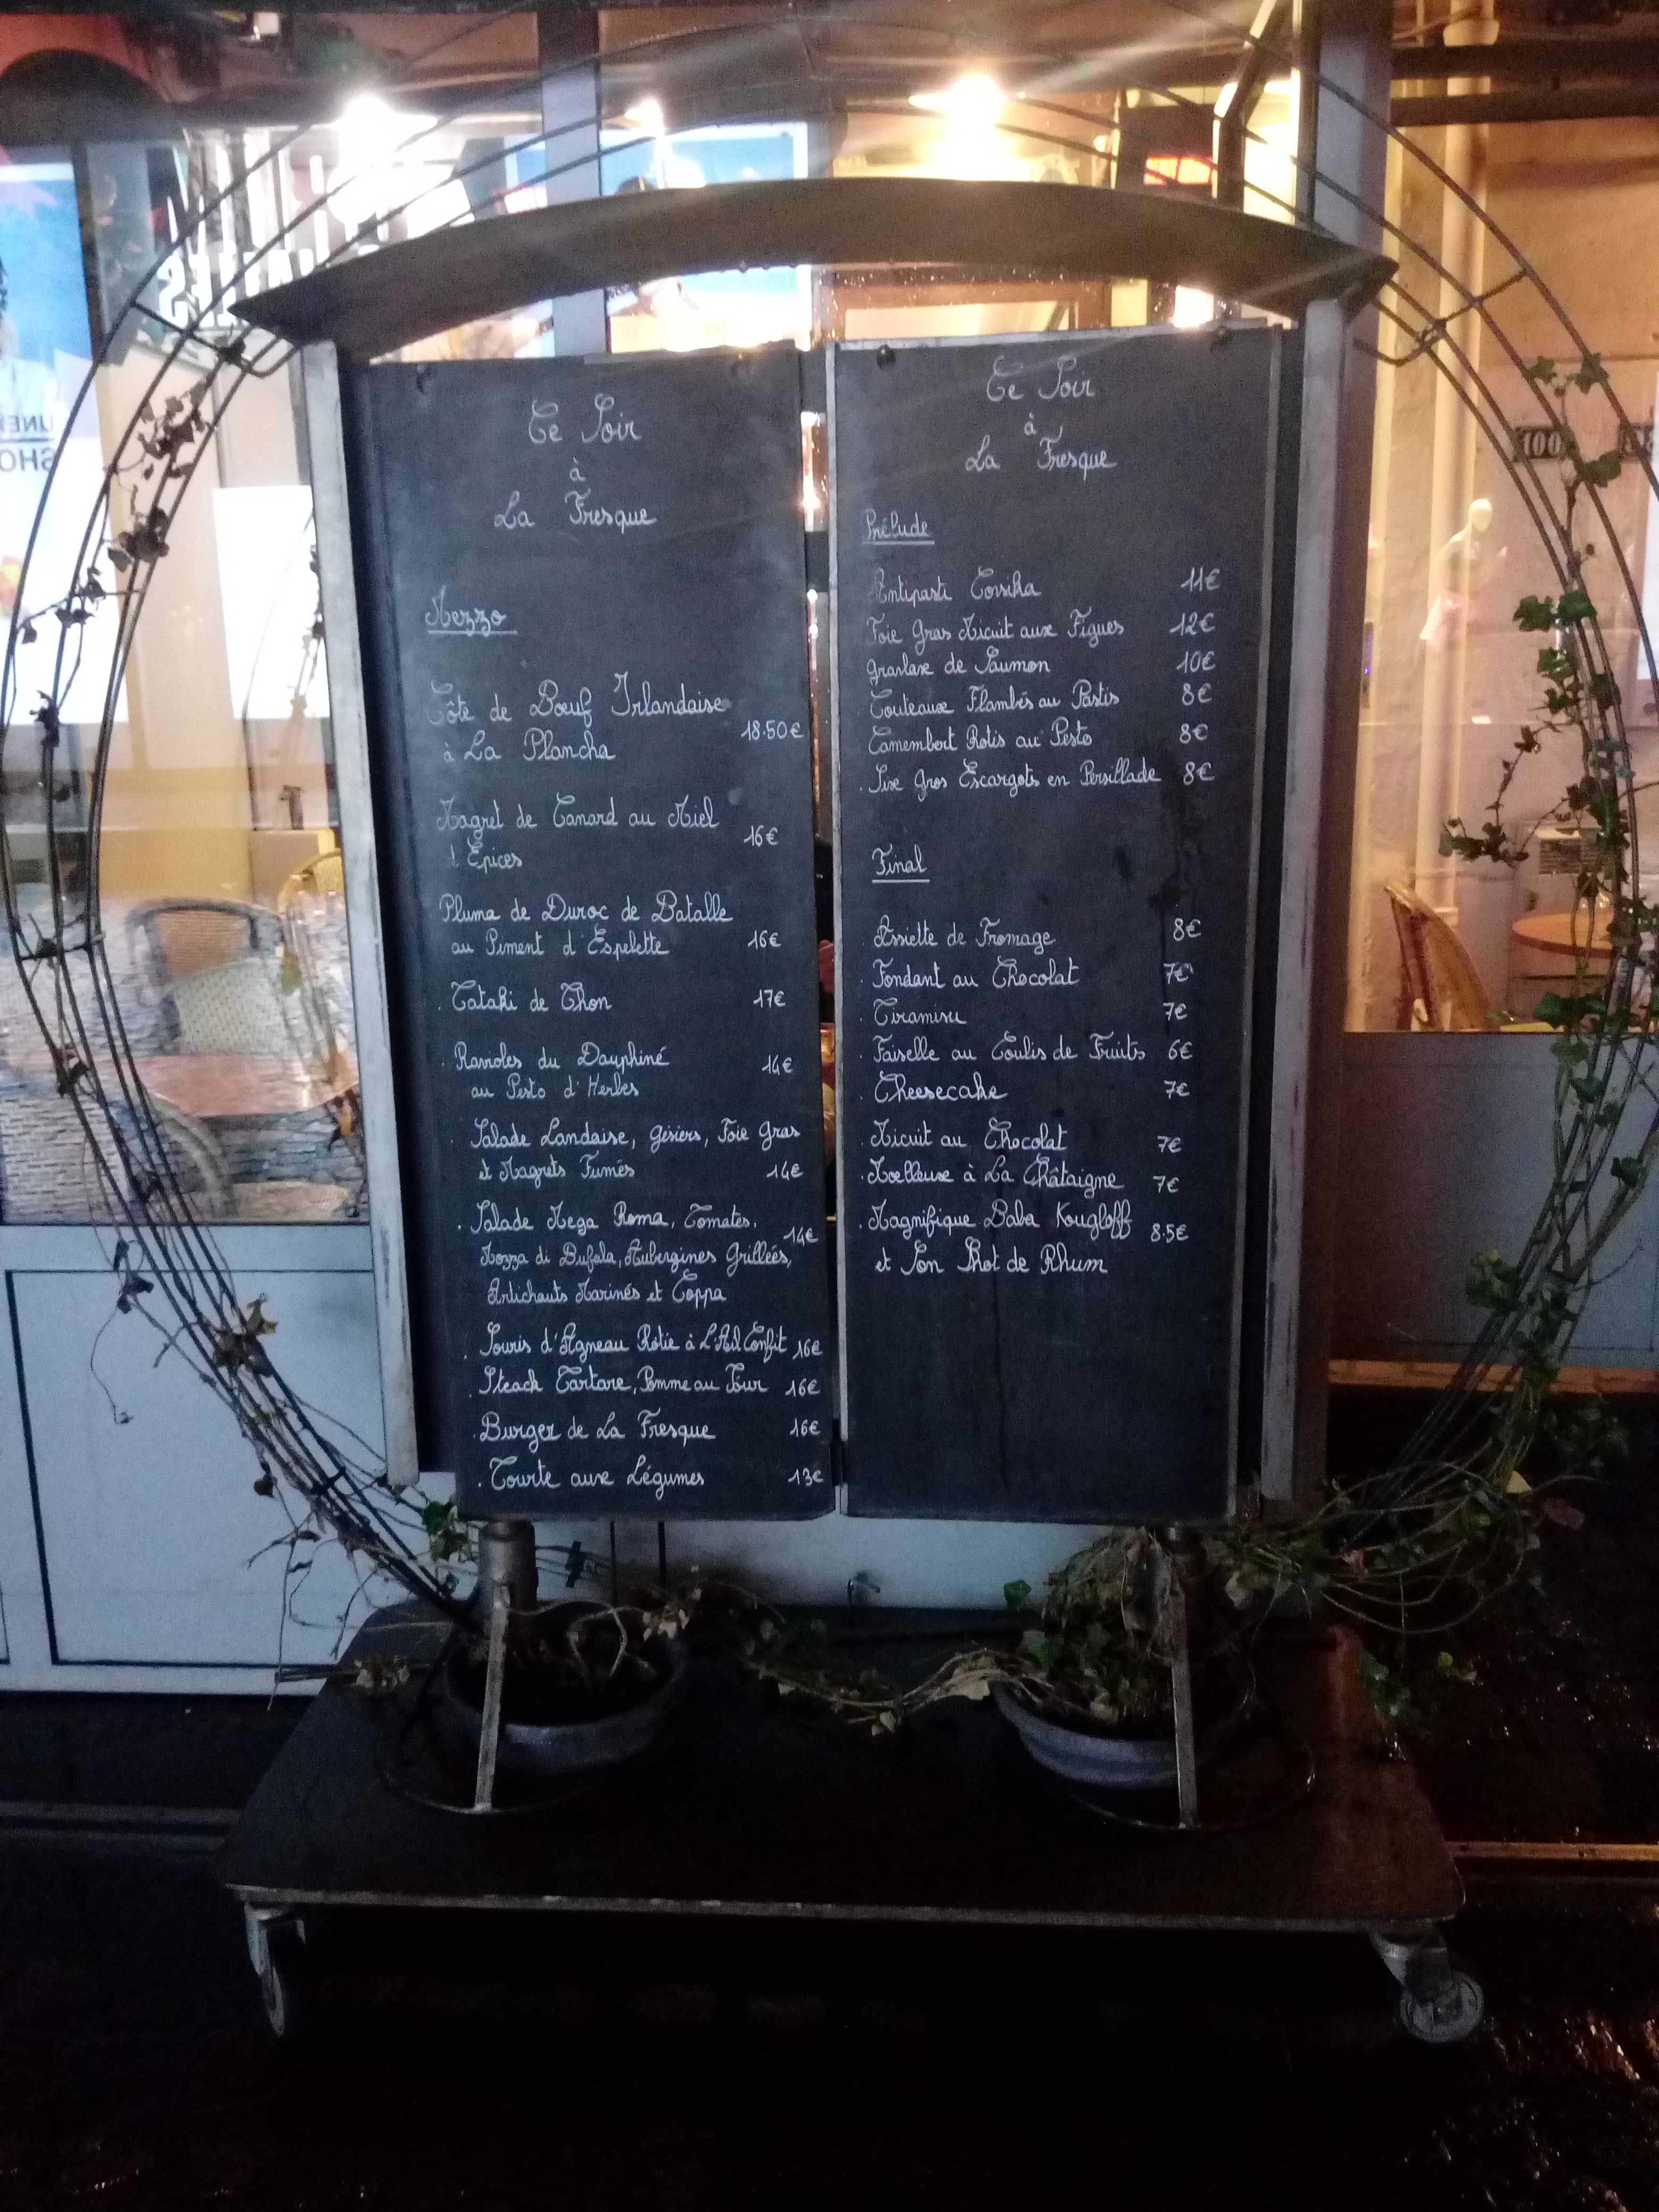 Ce Soir
à
La Fresque
Mezzo
Côte de Bœuf Irlandaise
à La Plancha 18.50€
Magret de Canard au Miel
Épices 16€
Pluma de Duroc de Batalle
au Piment d'Espelette 16€
. Tataki de Thon 17€
. Ravioles du Dauphiné 14€
au Pesto d'Herbes
. Salade Landaise, Gésiers, Foie Gras
et Magrets Fumés 14€
. Salade Mega Roma, Tomates, 14€
Mozza di Bufala, Aubergines Grillées,
Artichauts Marinés et Coppa
. Souris d'Agneau Rôtie à L'Ail Confit 16€
. Steack Tartare, Pomme au Four 16€
. Burger de La Fresque 16€
. Tourte aux Légumes 13€
Ce Soir
à
La Fresque
Prélude
Antipasti Corsika 11€
Foie Gras Micuit aux Figues 12€
Gravlax de Saumon 10€
Couteaux Flambés au Pastis 8€
Camembert Rotis au Pesto 8€
. Six Gros Escargots en Persillade 8€
Final
. Assiette de Fromage 8€
. Fondant au Chocolat 7€
. Tiramisu 7€
. Faiselle au Coulis de Fruits 6€
. Cheesecake 7€
. Micuit au Chocolat 7€
. Moelleux à La Châtaigne 7€
. Magnifique Baba Kougloff 8.5€
et Son Shot de Rhum
100